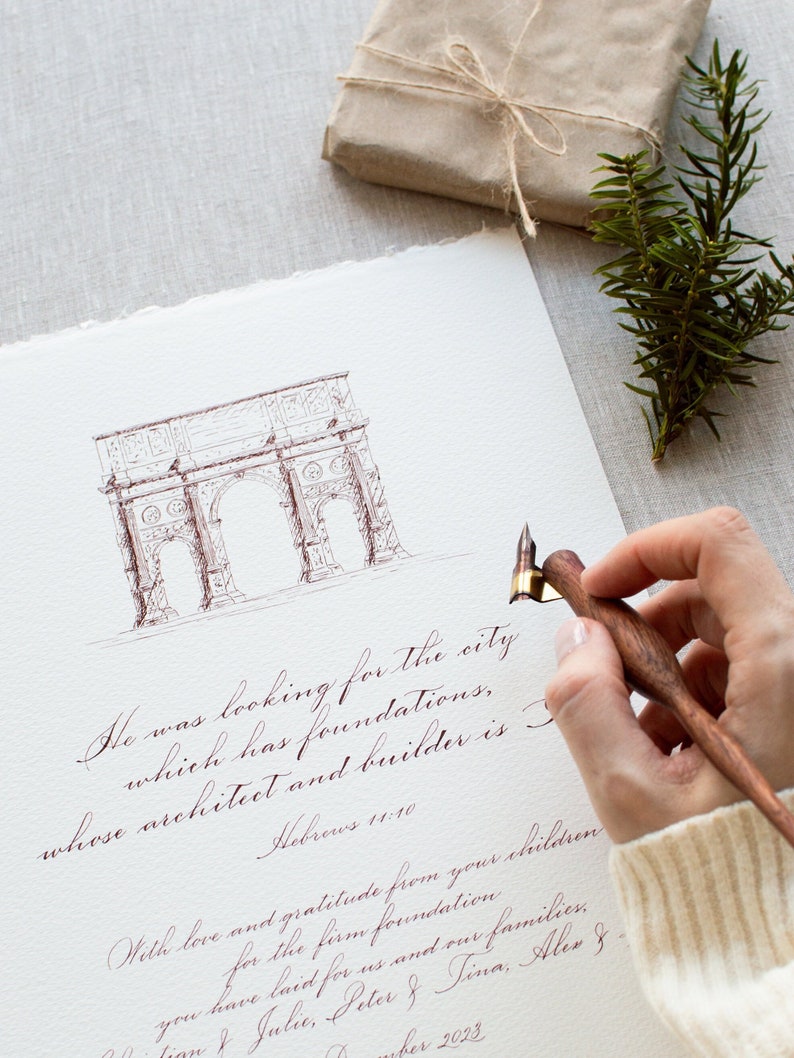 He was looking for the city
which has foundations,
whose architect and builder is
Hebrews 11:10
With love and gratitude from your children
for the firm foundation
you have laid for us and our families,
& Julie, Peter & Tina, Alex &
2023